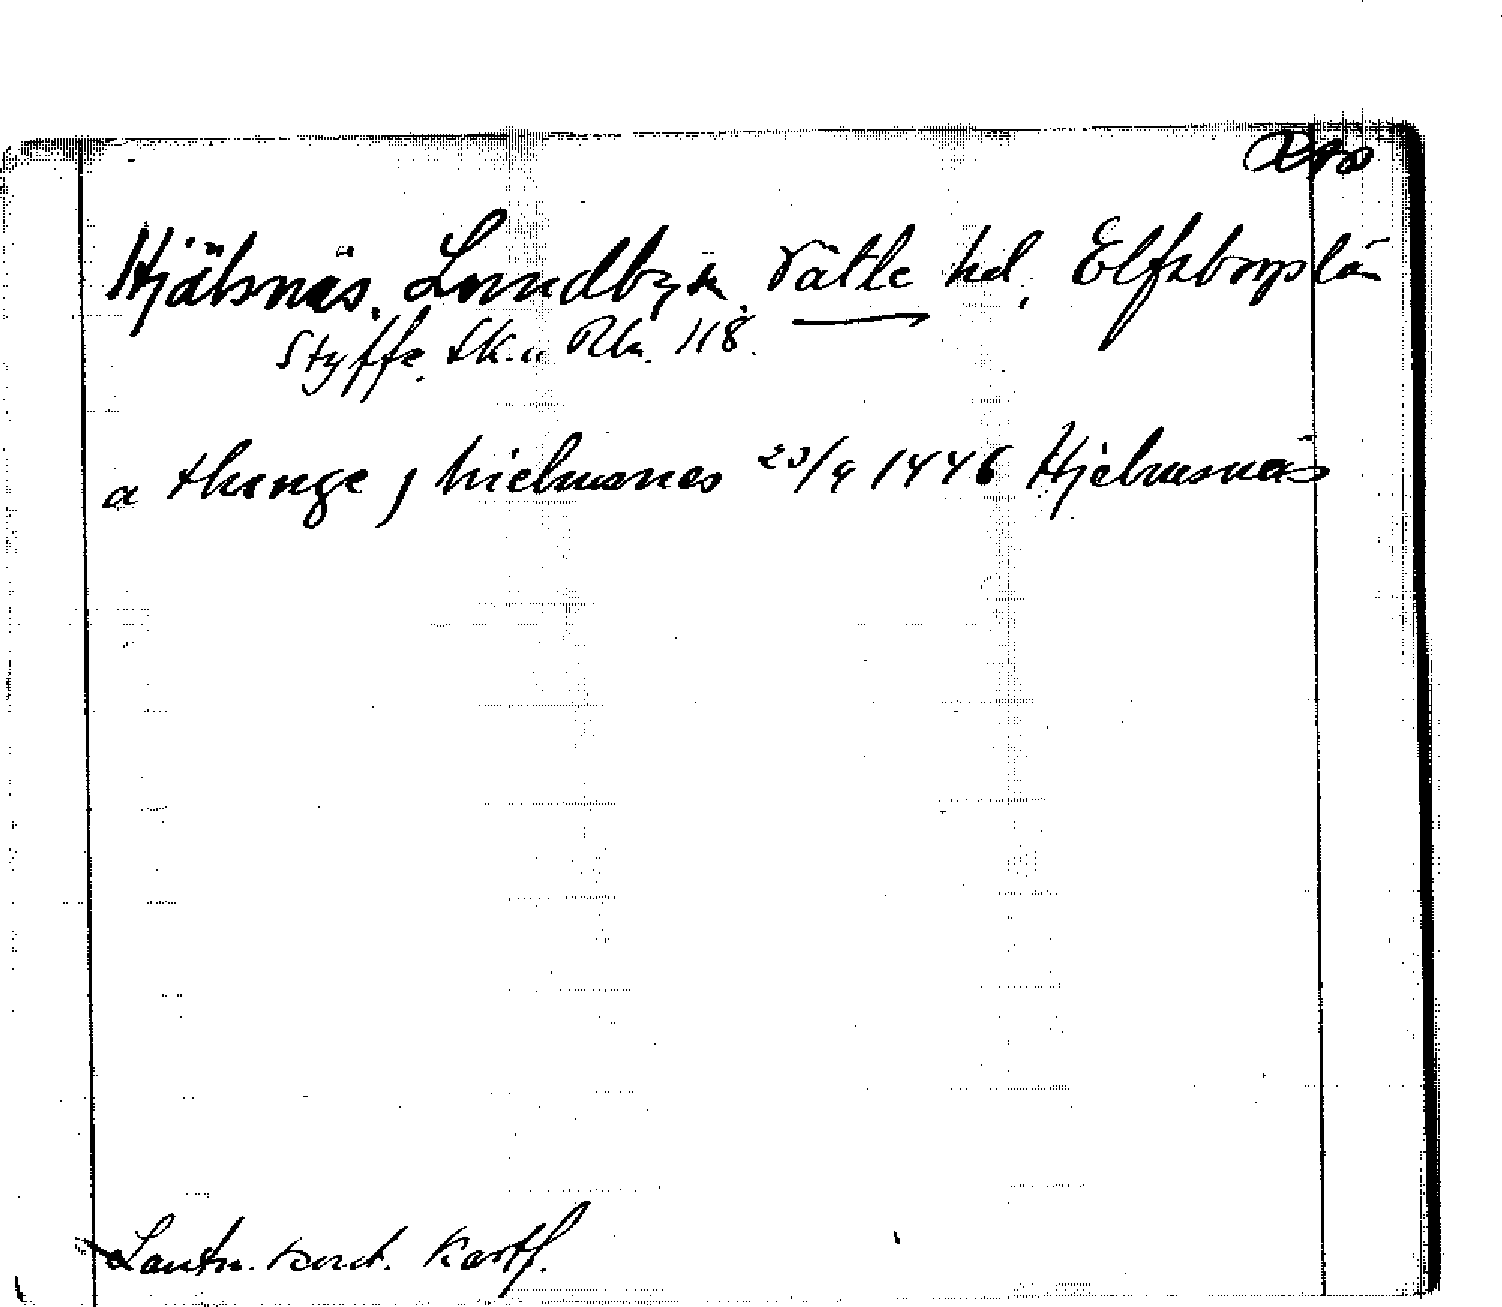 Hjälmnäs, Lundby sn. Vätle hd. Elfsborgs län
Styffe, Sk. u. Rkr. 118.
a thinge j hielmsnes 23/9 1446 Hjelmsnäs
Lantm. kont. Kartf.